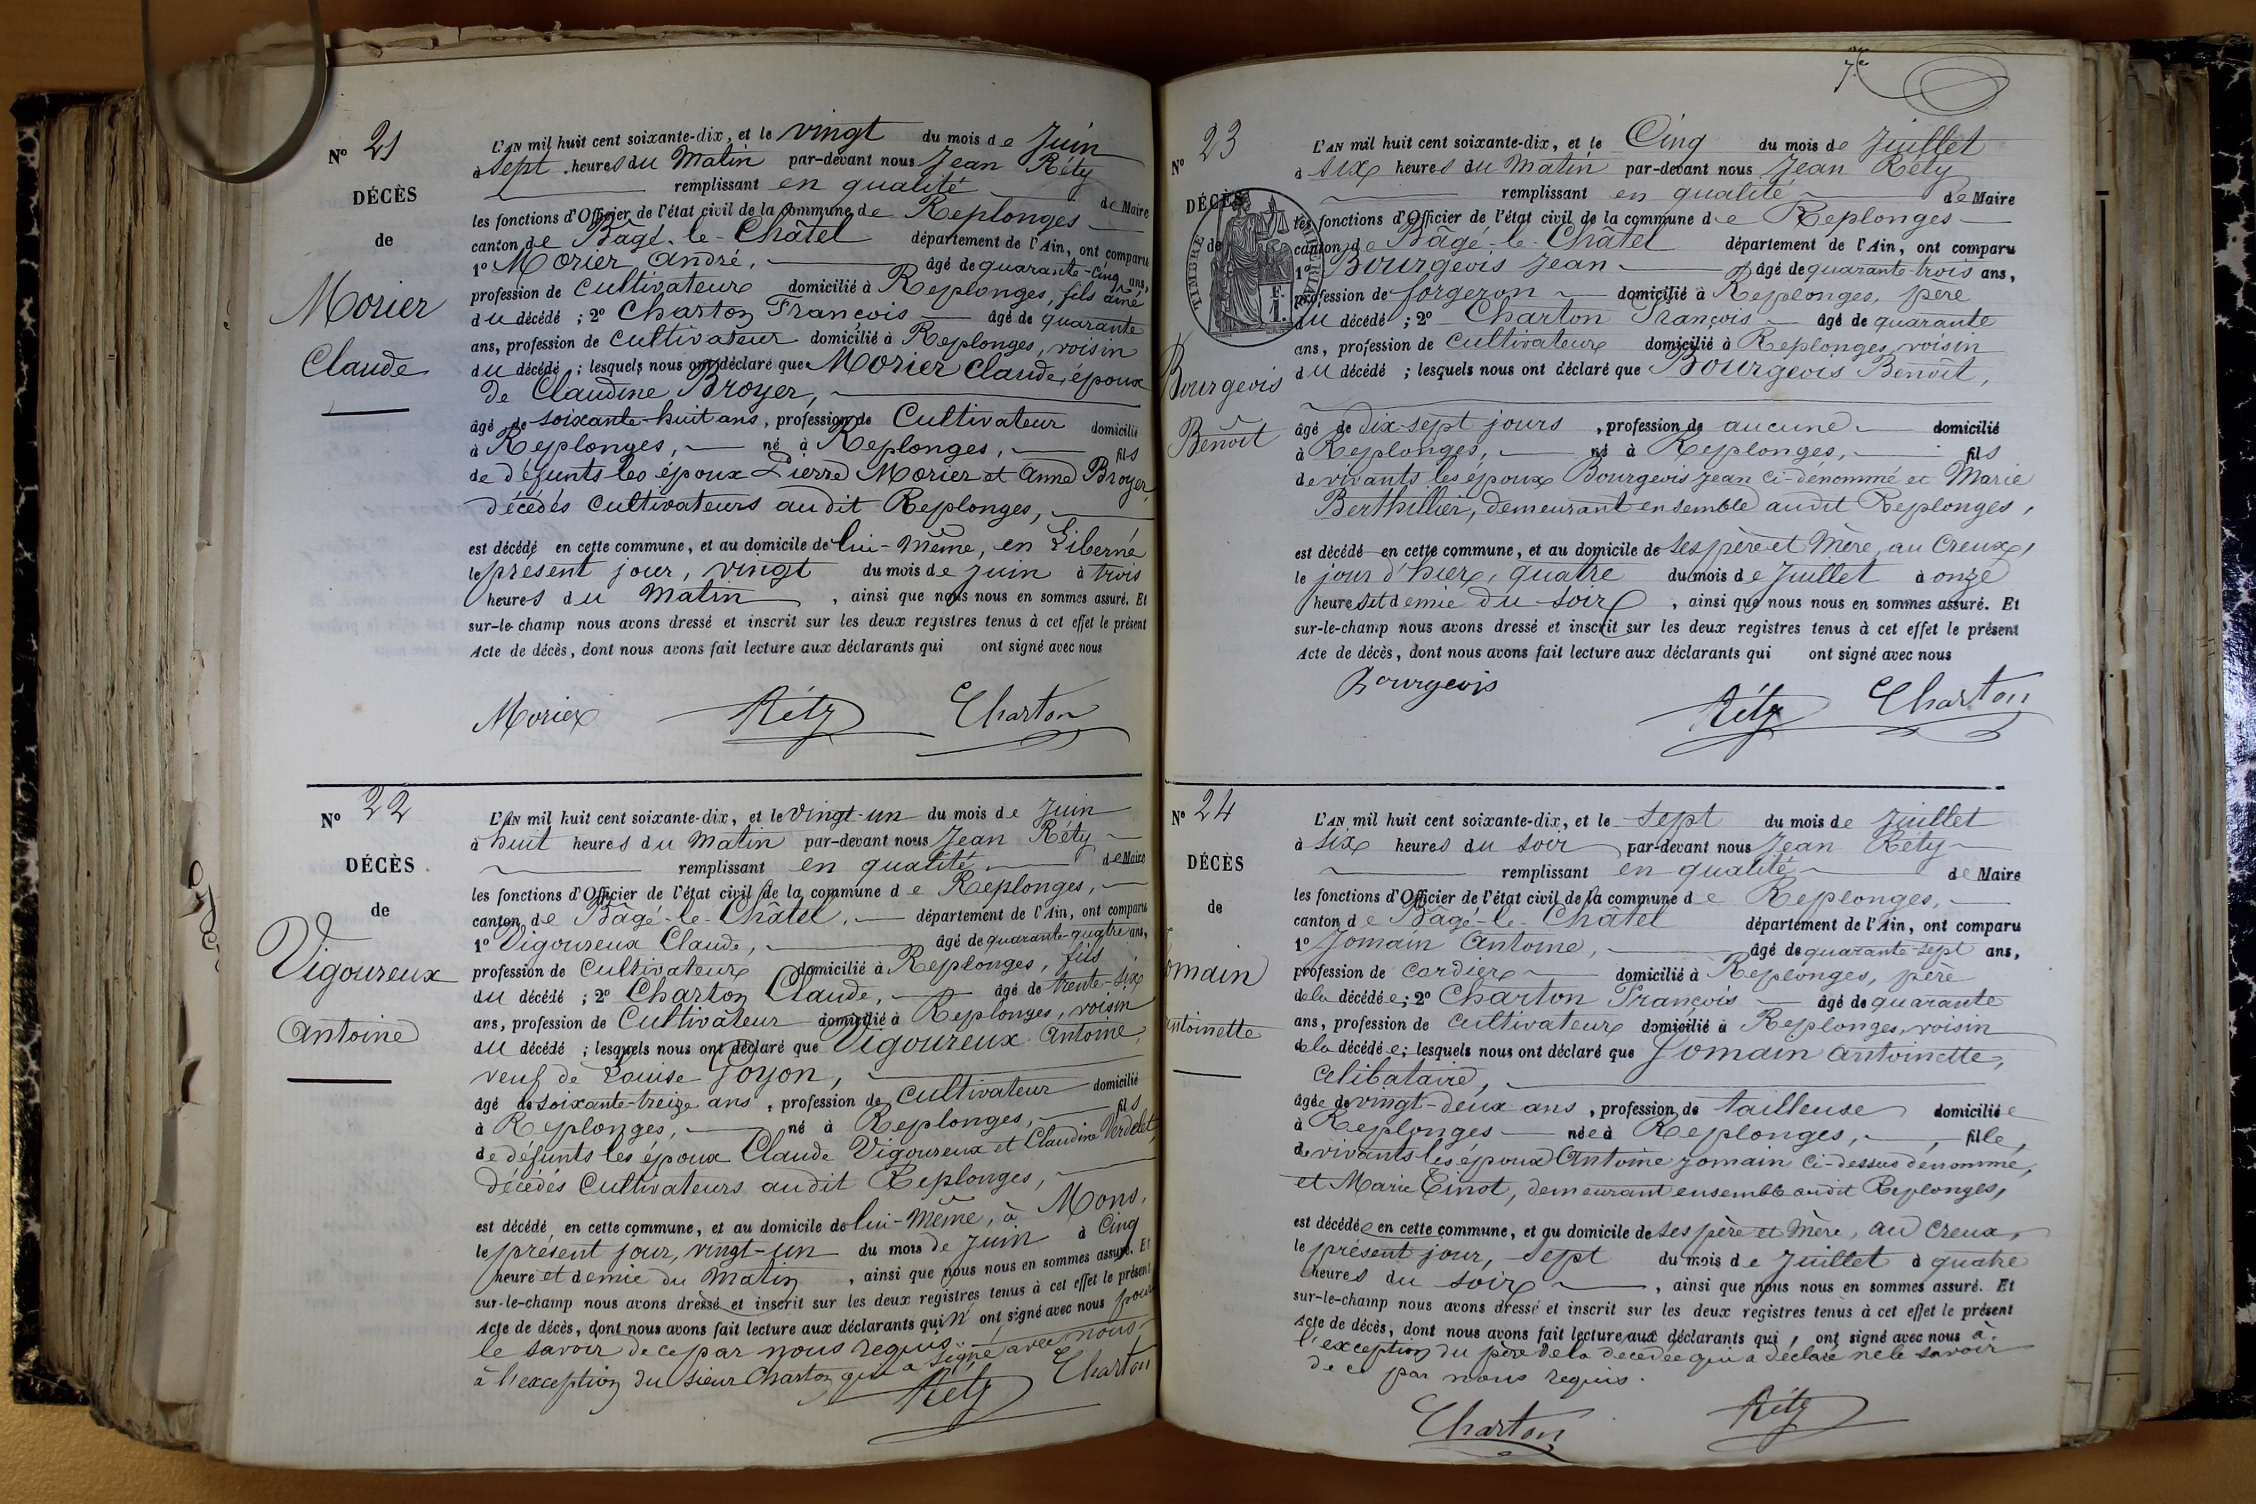 N° 21
DÉCÈS
de
Morier
Claude
L'AN mil huit cent soixante-dix, et le vingt du mois de Juin
à sept heures du Matin par-devant nous Jean Réty
remplissant en qualité de Maire
les fonctions d'Officier de l'état civil de la commune de Replonges
canton de Bâgé-le-Châtel département de l'Ain, ont comparu
1° Morier André, âgé de quarante-cinq ans,
profession de cultivateur domicilié à Replonges, fils aîné
du décédé ; 2° Charton François âgé de quarante
ans, profession de cultivateur domicilié à Replonges, voisin
du décédé ; lesquels nous ont déclaré que Morier Claude, époux
de Claudine Broyer,
âgé de soixante-huit ans, profession de Cultivateur domicilié
à Replonges, né à Replonges, fils
de défunts les époux Pierre Morier et Anne Broyer,
décédés cultivateurs audit Replonges,
est décédé en cette commune, et au domicile de lui-même, en Liberné
le présent jour, vingt du mois de juin à trois
heures du Matin, ainsi que nous nous en sommes assuré. Et
sur-le-champ nous avons dressé et inscrit sur les deux registres tenus à cet effet le présent
Acte de décès, dont nous avons fait lecture aux déclarants qui ont signé avec nous
Morier Réty Charton
N° 22
DÉCÈS
de
Vigoureux
Antoine
L'AN mil huit cent soixante-dix, et le vingt-un du mois de Juin
à huit heures du Matin par-devant nous Jean Réty
remplissant en qualité de Maire
les fonctions d'Officier de l'état civil de la commune de Replonges,
canton de Bâgé-le-Châtel, département de l'Ain, ont comparu
1° Vigoureux Claude, âgé de quarante-quatre ans,
profession de cultivateur domicilié à Replonges, fils
du décédé ; 2° Charton Claude, âgé de trente-six
ans, profession de Cultivateur domicilié à Replonges, voisin
du décédé ; lesquels nous ont déclaré que Vigoureux Antoine,
veuf de Louise Goyon,
âgé de soixante-treize ans, profession de cultivateur domicilié
à Replonges, né à Replonges, fils
de défunts les époux Claude Vigoureux et Claudine Verdelet,
décédés cultivateurs audit Replonges,
est décédé en cette commune, et au domicile de lui-même, à Mons,
le présent jour, vingt-un du mois de Juin à Cinq
heure et demie du Matin, ainsi que nous nous en sommes assuré. Et
sur-le-champ nous avons dressé et inscrit sur les deux registres tenus à cet effet le présent
Acte de décès, dont nous avons fait lecture aux déclarants qui n'ont signé avec nous pour
le savoir de ce par nous requis
à l'exception du sieur Charton qui a signé avec nous
Réty Charton
7e
N° 23
DÉCÈS
de
Bourgeois
Benoît
TIMBRE
F.
1.
L'AN mil huit cent soixante-dix, et le Cinq du mois de Juillet
à six heures du Matin par-devant nous Jean Réty
remplissant en qualité de Maire
les fonctions d'Officier de l'état civil de la commune de Replonges
canton de Bâgé-le-Châtel département de l'Ain, ont comparu
1° Bourgeois Jean âgé de quarante-trois ans,
profession de forgeron domicilié à Replonges, père
du décédé ; 2° Charton François âgé de quarante
ans, profession de cultivateur domicilié à Replonges, voisin
du décédé ; lesquels nous ont déclaré que Bourgeois Benoît,
âgé de dix-sept jours, profession de aucune domicilié
à Replonges, né à Replonges, fils
de vivants les époux Bourgeois Jean ci-dénommé et Marie
Berthillier, demeurant ensemble audit Replonges,
est décédé en cette commune, et au domicile de ses père et Mère, au Creux,
le jour d'hier, quatre du mois de Juillet à onze
heures et demie du soir, ainsi que nous nous en sommes assuré. Et
sur-le-champ nous avons dressé et inscrit sur les deux registres tenus à cet effet le présent
Acte de décès, dont nous avons fait lecture aux déclarants qui ont signé avec nous
Bourgeois Réty Charton
N° 24
DÉCÈS
de
omain
ntoinette
L'AN mil huit cent soixante-dix, et le sept du mois de Juillet
à six heures du soir par-devant nous Jean Réty
remplissant en qualité de Maire
les fonctions d'Officier de l'état civil de la commune de Replonges,
canton de Bâgé-le-Châtel département de l'Ain, ont comparu
1° Jomain Antoine, âgé de quarante-sept ans,
profession de cordier domicilié à Replonges, père
de la décédée ; 2° Charton François âgé de quarante
ans, profession de cultivateur domicilié à Replonges, voisin
de la décédée ; lesquels nous ont déclaré que Jomain Antoinette,
célibataire,
âgée de vingt-deux ans, profession de tailleuse domiciliée
à Replonges née à Replonges, fille,
de vivants les époux Antoine Jomain ci-dessus dénommé,
et Marie Tinot, demeurant ensemble audit Replonges,
est décédée en cette commune, et au domicile de ses père et Mère, au Creux,
le présent jour, sept du mois de Juillet à quatre
heures du soir, ainsi que nous nous en sommes assuré. Et
sur-le-champ nous avons dressé et inscrit sur les deux registres tenus à cet effet le présent
Acte de décès, dont nous avons fait lecture aux déclarants qui ont signé avec nous à
l'exception du père de la décédée qui a déclaré ne le savoir
de ce par nous requis.
Charton Réty